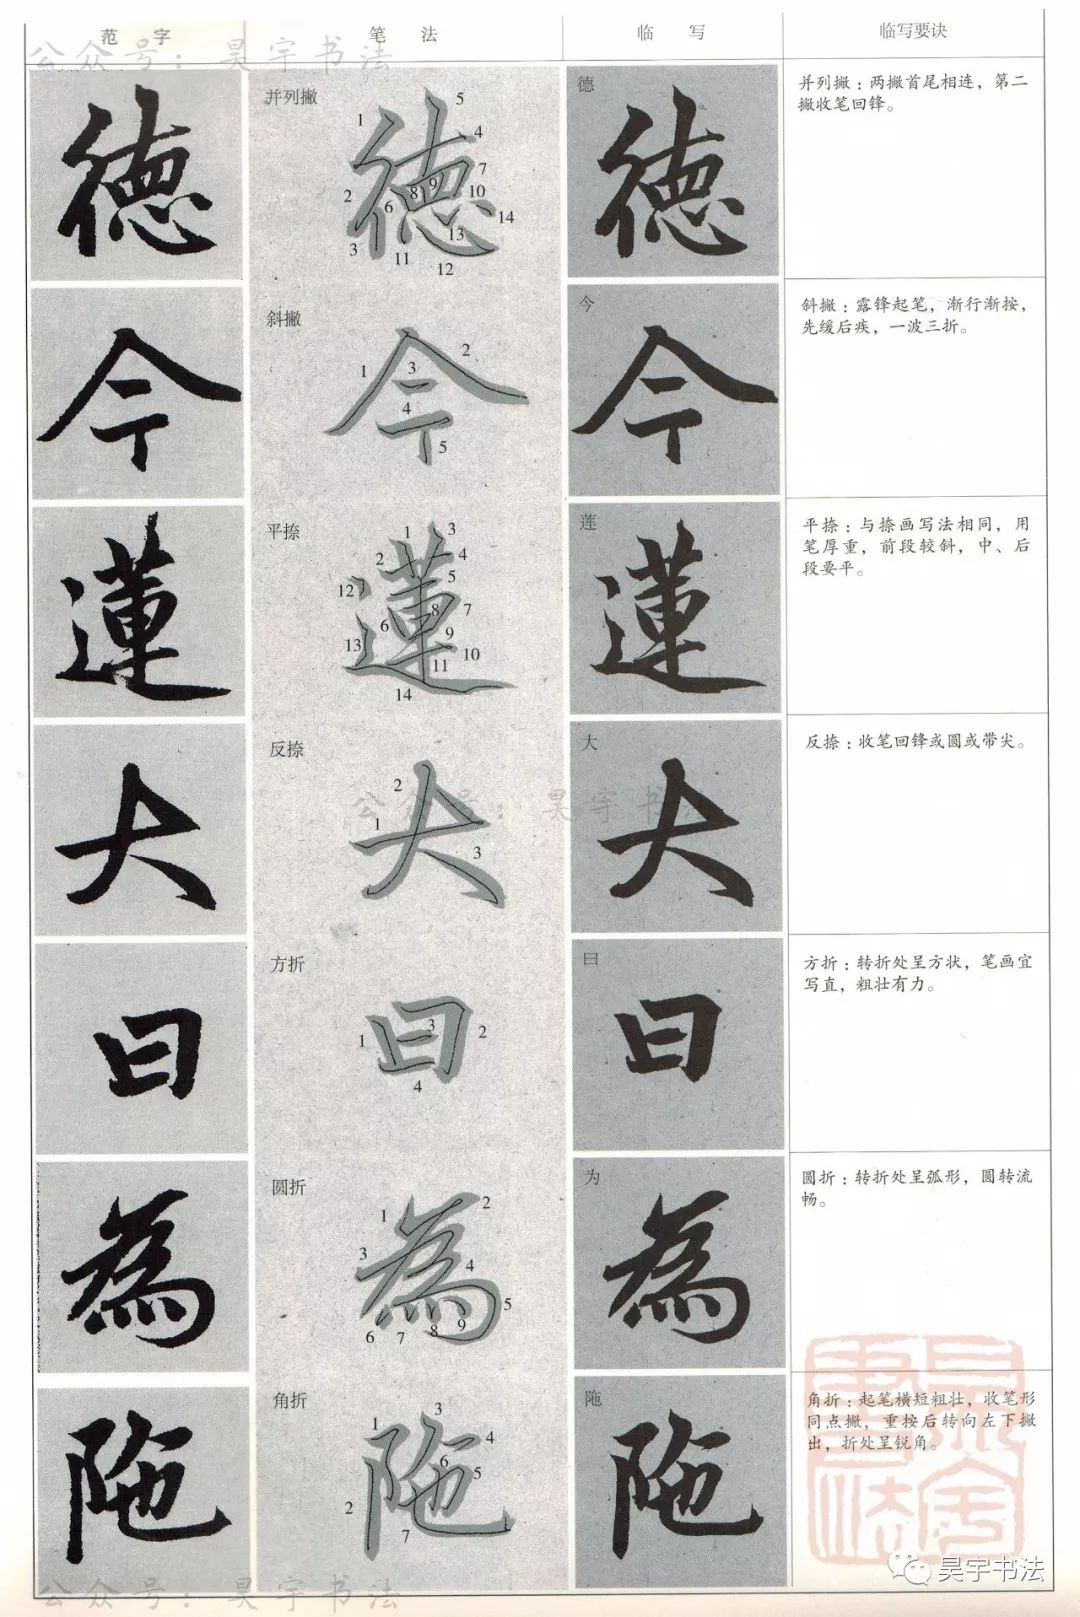 范 字 笔 法 临 写 临写要诀
公众号：昊宇书法
德 并列撇 德 并列撇：两撇首尾相连，第二
撇收笔回锋。
1 2 3 4 5 6 7 8 9 10 11 12 13 14
今 斜撇 今 斜撇：露锋起笔，渐行渐按，
先缓后疾，一波三折。
1 2 3 4 5
蓮 平捺 莲 平捺：与捺画写法相同，用
笔厚重，前段较斜，中、后
段要平。
1 2 3 4 5 6 7 8 9 10 11 12 13 14
大 反捺 大 反捺：收笔回锋或圆或带尖。
1 2 3
公众号：昊宇书法
曰 方折 曰 方折：转折处呈方状，笔画宜
写直，粗壮有力。
1 2 3 4
為 圆折 为 圆折：转折处呈弧形，圆转流
畅。
1 2 3 4 5 6 7 8 9
陁 角折 陁 角折：起笔横短粗壮，收笔形
同点撇，重按后转向左下撇
出，折处呈锐角。
1 2 3 4 5 6 7
昊宇书法
公众号：昊宇书法